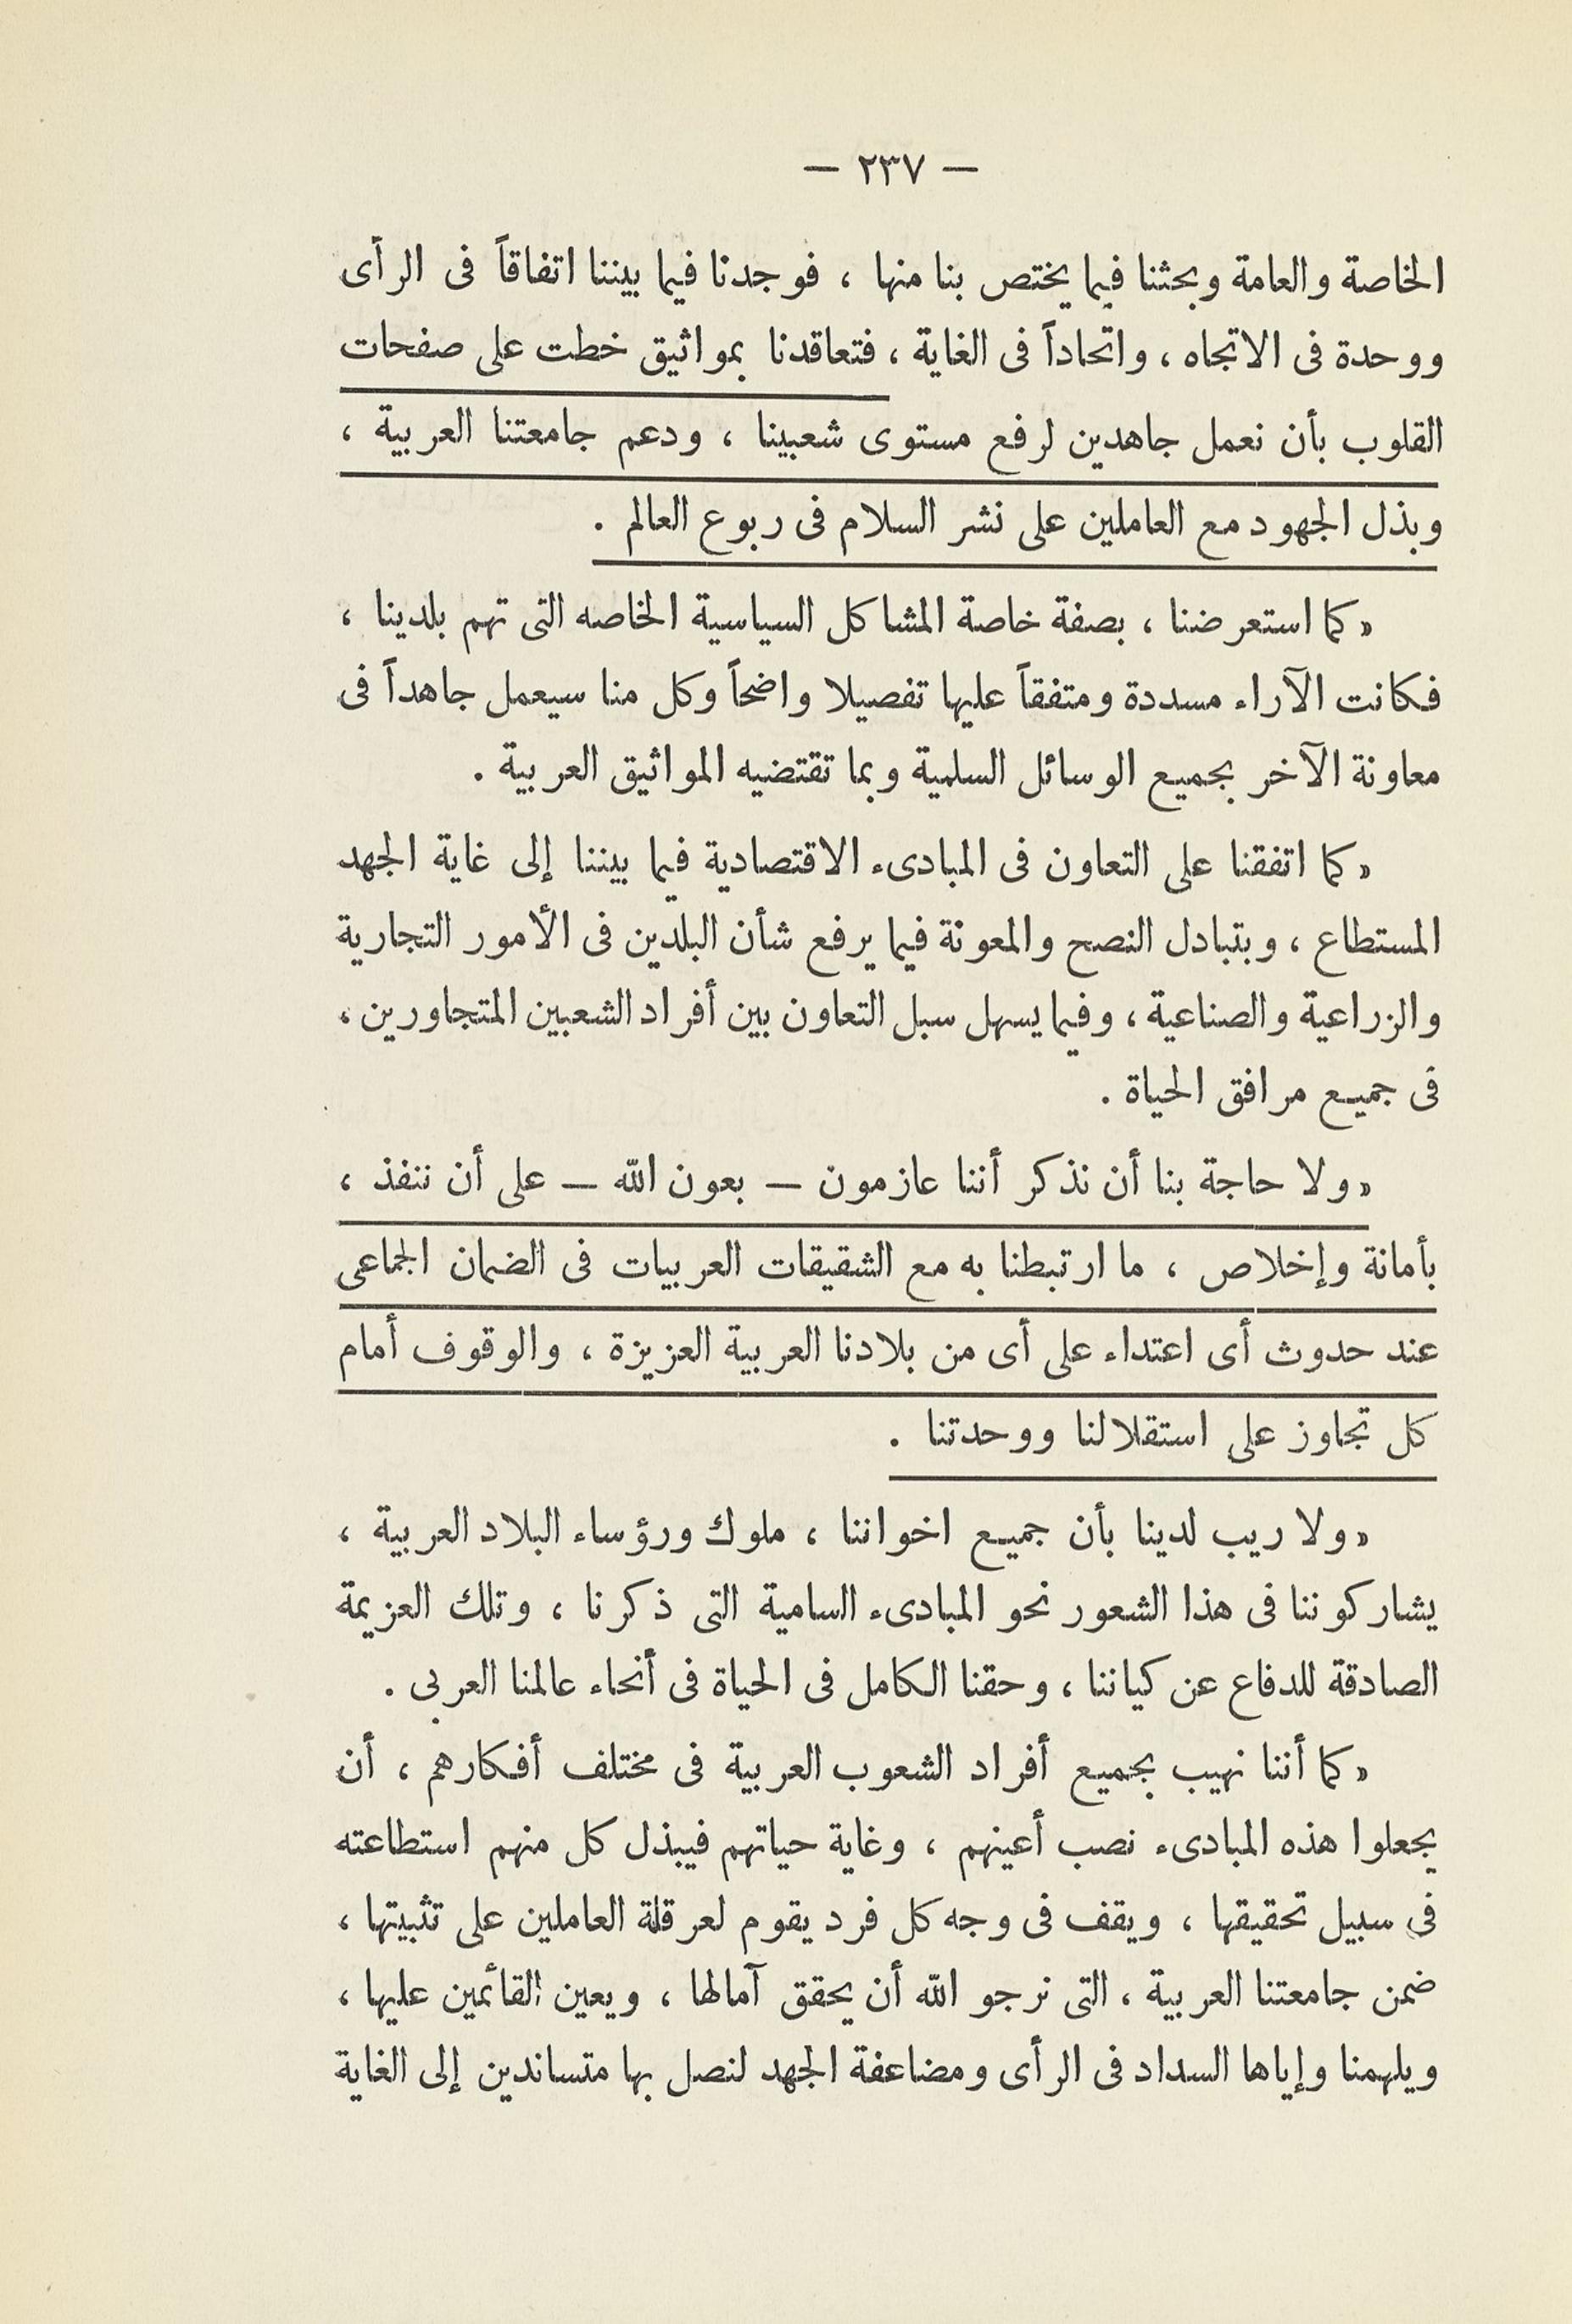 — ٢٣٧ —
الخاصة والعامة وبحثنا فيما يختص بنا منها ، فوجدنا فيما بيننا اتفاقاً فى الرأى
ووحدة فى الاتجاه ، واتحاداً فى الغاية ، فتعاقدنا بمواثيق خطت على صفحات
القلوب بأن نعمل جاهدين لرفع مستوى شعبينا ، ودعم جامعتنا العربية ،
وبذل الجهود مع العاملين على نشر السلام فى ربوع العالم .
« كما استعرضنا ، بصفة خاصة المشاكل السياسية الخاصه التى تهم بلدينا ،
فكانت الآراء مسددة ومتفقاً عليها تفصيلا واضحاً وكل منا سيعمل جاهداً فى
معاونة الآخر بجميع الوسائل السلمية وبما تقتضيه المواثيق العربية .
« كما اتفقنا على التعاون فى المبادىء الاقتصادية فيما بيننا إلى غاية الجهد
المستطاع ، وبتبادل النصح والمعونة فيما يرفع شأن البلدين فى الأمور التجارية
والزراعية والصناعية ، وفيما يسهل سبل التعاون بين أفراد الشعبين المتجاورين ،
فى جميع مرافق الحياة .
« ولا حاجة بنا أن نذكر أننا عازمون — بعون الله — على أن ننفذ ،
بأمانة وإخلاص ، ما ارتبطنا به مع الشقيقات العربيات فى الضمان الجماعى
عند حدوث أى اعتداء على أى من بلادنا العربية العزيزة ، والوقوف أمام
كل تجاوز على استقلالنا ووحدتنا .
« ولا ريب لدينا بأن جميع اخواننا ، ملوك ورؤساء البلاد العربية ،
يشاركوننا فى هذا الشعور نحو المبادىء السامية التى ذكرنا ، وتلك العزيمة
الصادقة للدفاع عن كياننا ، وحقنا الكامل فى الحياة فى أنحاء عالمنا العربى .
« كما أننا نهيب بجميع أفراد الشعوب العربية فى مختلف أفكارهم ، أن
يجعلوا هذه المبادىء نصب أعينهم ، وغاية حياتهم فيبذل كل منهم استطاعته
فى سبيل تحقيقها ، ويقف فى وجه كل فرد يقوم لعرقلة العاملين على تثبيتها ،
ضمن جامعتنا العربية ، التى نرجو الله أن يحقق آمالها ، ويعين القائمين عليها ،
ويلهمنا وإياها السداد فى الرأى ومضاعفة الجهد لنصل بها متساندين إلى الغاية